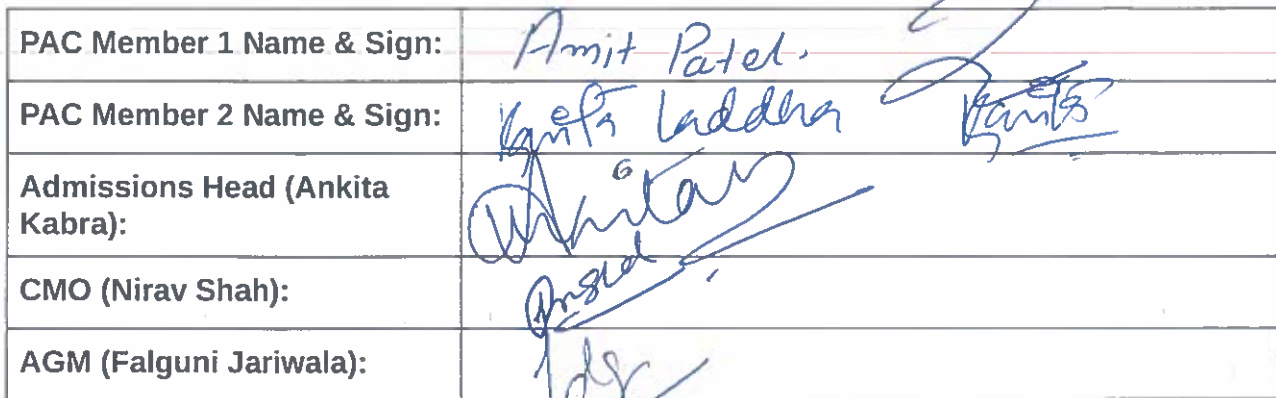 PAC Member 1 Name & Sign: Amit Patel.
PAC Member 2 Name & Sign: Laddha
Admissions Head (Ankita
Kabra): Ankita
CMO (Nirav Shah):
AGM (Falguni Jariwala):